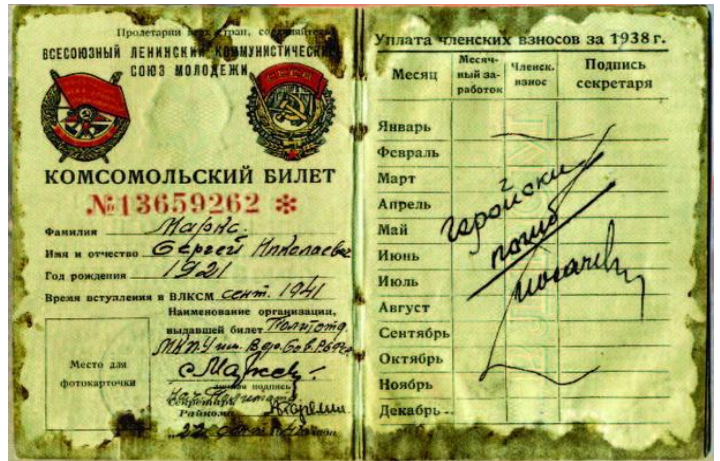 Пролетарии всех стран, соединяйтесь
ВСЕСОЮЗНЫЙ ЛЕНИНСКИЙ КОММУНИСТИЧЕСКИЙ
СОЮЗ МОЛОДЕЖИ
СССР
КОМСОМОЛЬСКИЙ БИЛЕТ
№13659262 *
Фамилия Маркс.
Имя и отчество Сергей Николаевич
Год рождения 1921
Время вступления в ВЛКСМ сент. 1941
Наименование организации,
выдавшей билет Политотд.
Место для
фотокарточки
личная подпись
Секретарь
Райкома
22
Уплата членских взносов за 1938 г.
Месяц Месяч-ный за-работок Членск. взнос Подпись секретаря
Январь
Февраль
Март
Апрель
Май
Июнь
Июль
Август
Сентябрь
Октябрь
Ноябрь
Декабрь
геройски
погиб